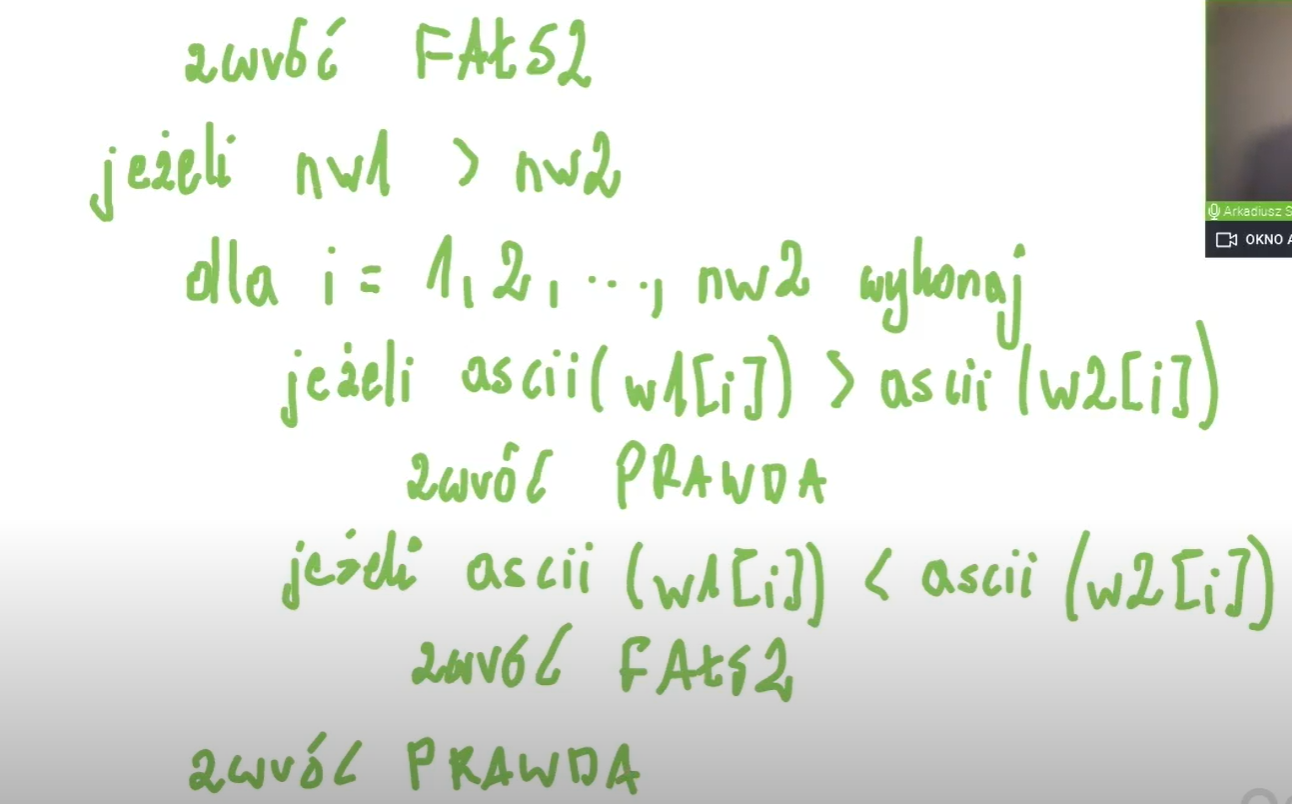 zwróć FAŁSZ
jeżeli nw1 > nw2
dla i = 1, 2, ..., nw2 wykonaj
jeżeli ascii(w1[i]) > ascii(w2[i])
zwróć PRAWDA
jeżeli ascii(w1[i]) < ascii(w2[i])
zwróć FAŁSZ
zwróć PRAWDA
Arkadiusz S
OKNO A